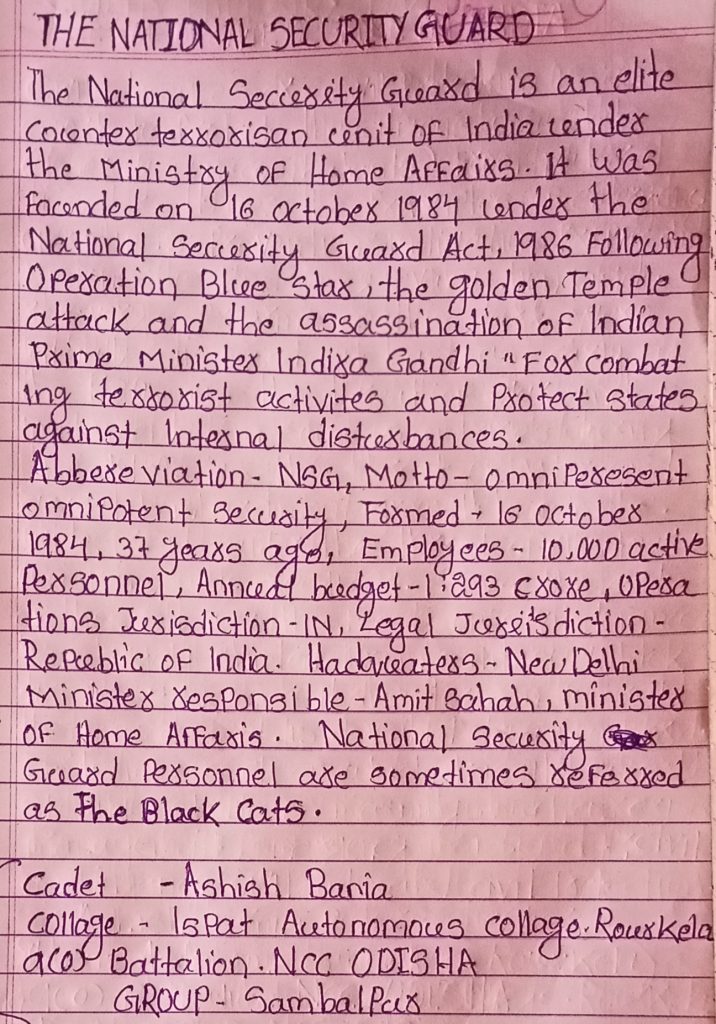 THE NATIONAL SECURITY GUARD
The National Seccerity Gueard is an elite
Counter terrorisan cenit of India cender
the Ministry of Home Affairs. It was
Facended on 16 october 1984 under the
National Seccerity Guard Act, 1986 Following
Operation Blue Star, the golden Temple
attack and the assassination of Indian
Prime Minister Indira Gandhi "For combat
ing terrorist activites and Protect states
against Internal disturbances.
Abbereviation- NSG, Motto- omniperesent
omnipotent Security, Formed - 16 October
1984, 37 years ago, Employees - 10,000 active
Personnel, Annual budget - 1:293 crore, Opera
tions Jurisdiction - IN, Legal Jureisdiction -
Republic of India. Hadqueaters - New Delhi
Minister responsible - Amit Sahah, minister
of Home Affaris. National Security
Guard Personnel are sometimes referred
as The Black Cats.
Cadet - Ashish Bania
Collage - Ispat Autonomous collage. Rourkela
Battalion. NCC ODISHA
GROUP - Sambalpur